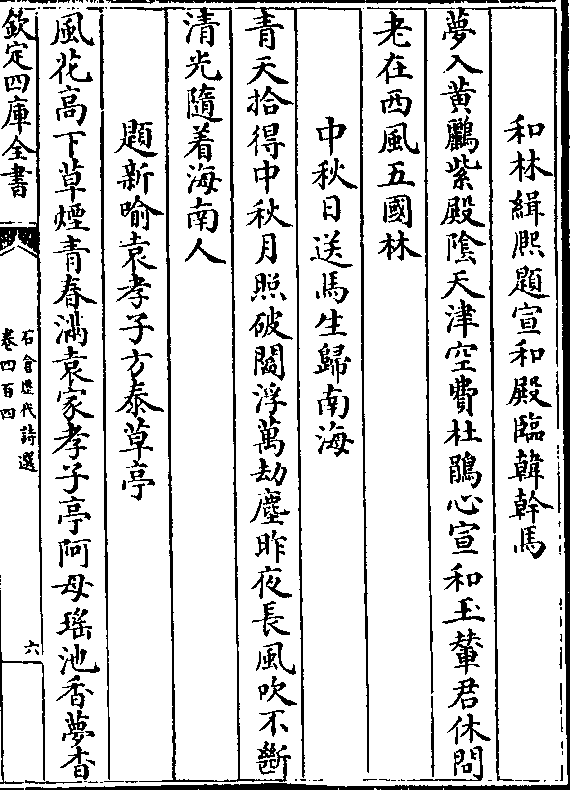 和林緝熈題宣和殿臨韓幹馬
夢入黄鸝紫殿隂天津空費杜鵑心宣和玉輦君休問
老在西風五國林
中秋日送馬生歸南海
青天拾得中秋月照破閻浮萬劫塵昨夜長風吹不斷
清光隨着海南人
題新喻袁孝子方泰草亭
風花高下草煙青春滿袁家孝子亭阿母瑶池香夢杳
欽定四庫全書
石倉歴代詩選
卷四百四
六